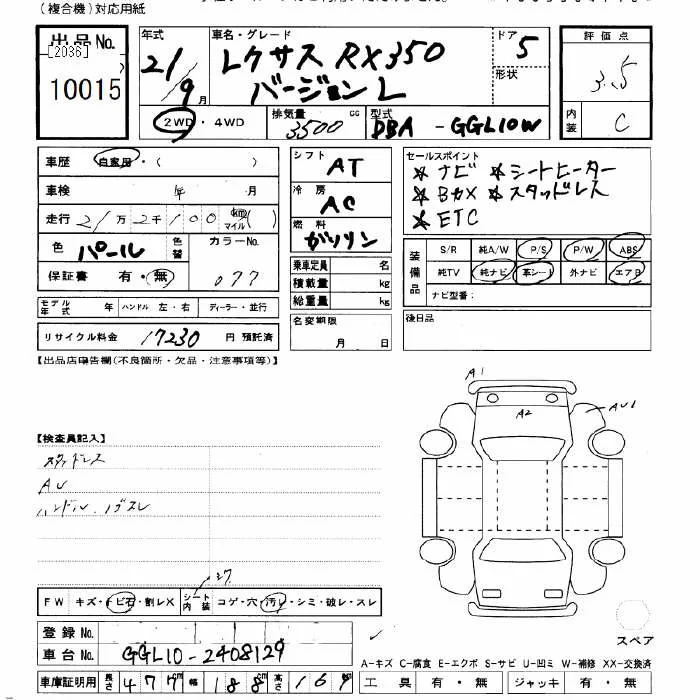 (複合機)対応用紙
出品No.
[2036]
10015
年式
21/9月
車名・グレード
レクサス RX350
バージョン L
ドア 5
形状
評価点
3.5
内装 C
2WD・4WD
排気量 3500 cc
型式 DBA-GGL10W
車歴 自家用・( )
車検 年 月
走行 21万2千100 km マイル( )
色 パール
色替
カラーNo.
077
保証書 有・無
モデル年式 年 ハンドル 左・右 ディーラー・並行
リサイクル料金 17230 円 預託済
シフト AT
冷房 AC
燃料 ガソリン
乗車定員 名
積載量 kg
総重量 kg
名変期限
月 日
セールスポイント
☆ナビ ☆シートヒーター
☆Bカメ ☆スタッドレス
☆ETC
装備品
S/R 純A/W P/S P/W ABS
純TV 純ナビ 革シート 外ナビ エアB
ナビ型番:
後日品
【出品店申告欄(不良箇所・欠品・注意事項等)】
【検査員記入】
スタッドレス
AU
ハンドル、ノブスレ
FW キズ・トビ石・割レX
シート内装 コゲ・穴・汚レ・シミ・破レ・スレ
登録No.
車台No. GGL10-2408129
車庫証明用 長さ 477 cm 幅 188 cm 高さ 169
A1
A2
スペア
A-キズ C-腐食 E-エクボ S-サビ U-凹ミ W-補修 XX-交換済
工具 有・無 ジャッキ 有・無